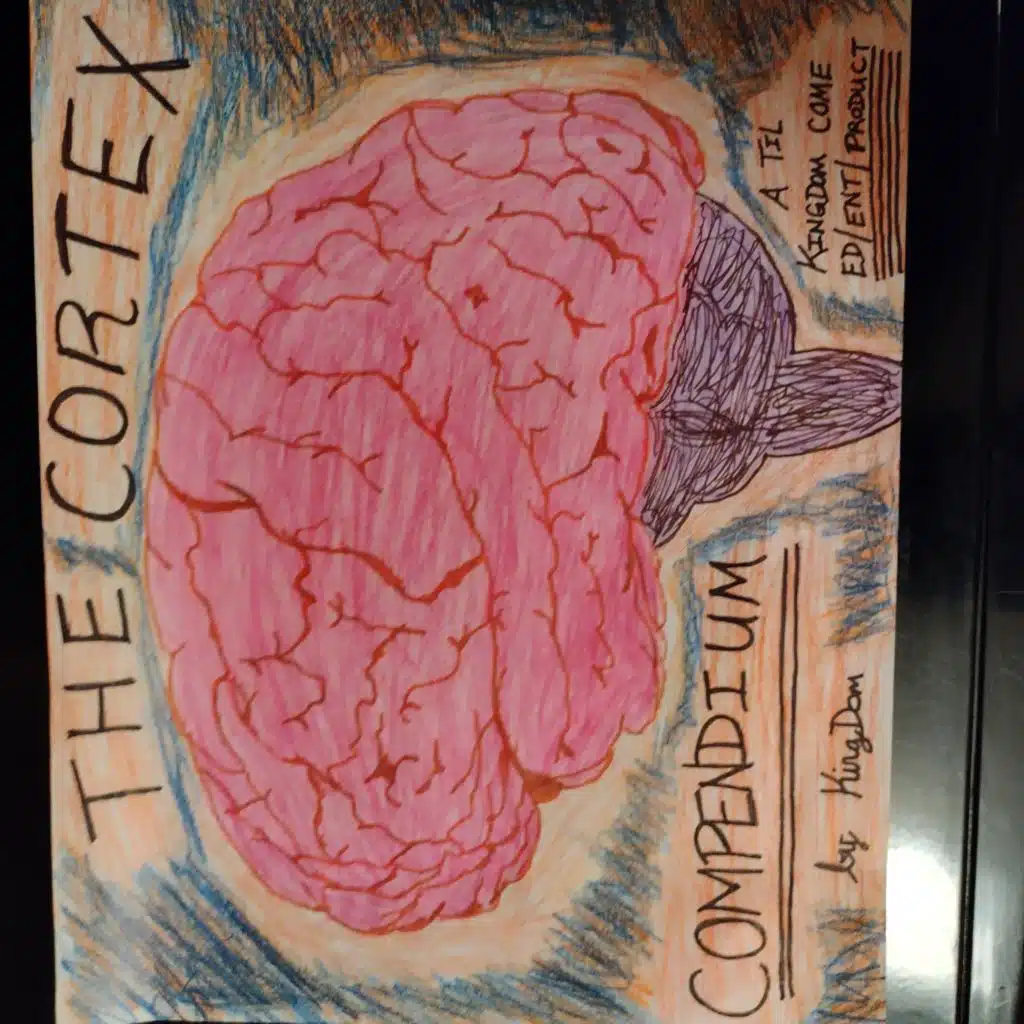 THE CORTEX
COMPENDIUM
by KingDom
A TIL
KINGDOM COME
ED/ENT/PRODUCT